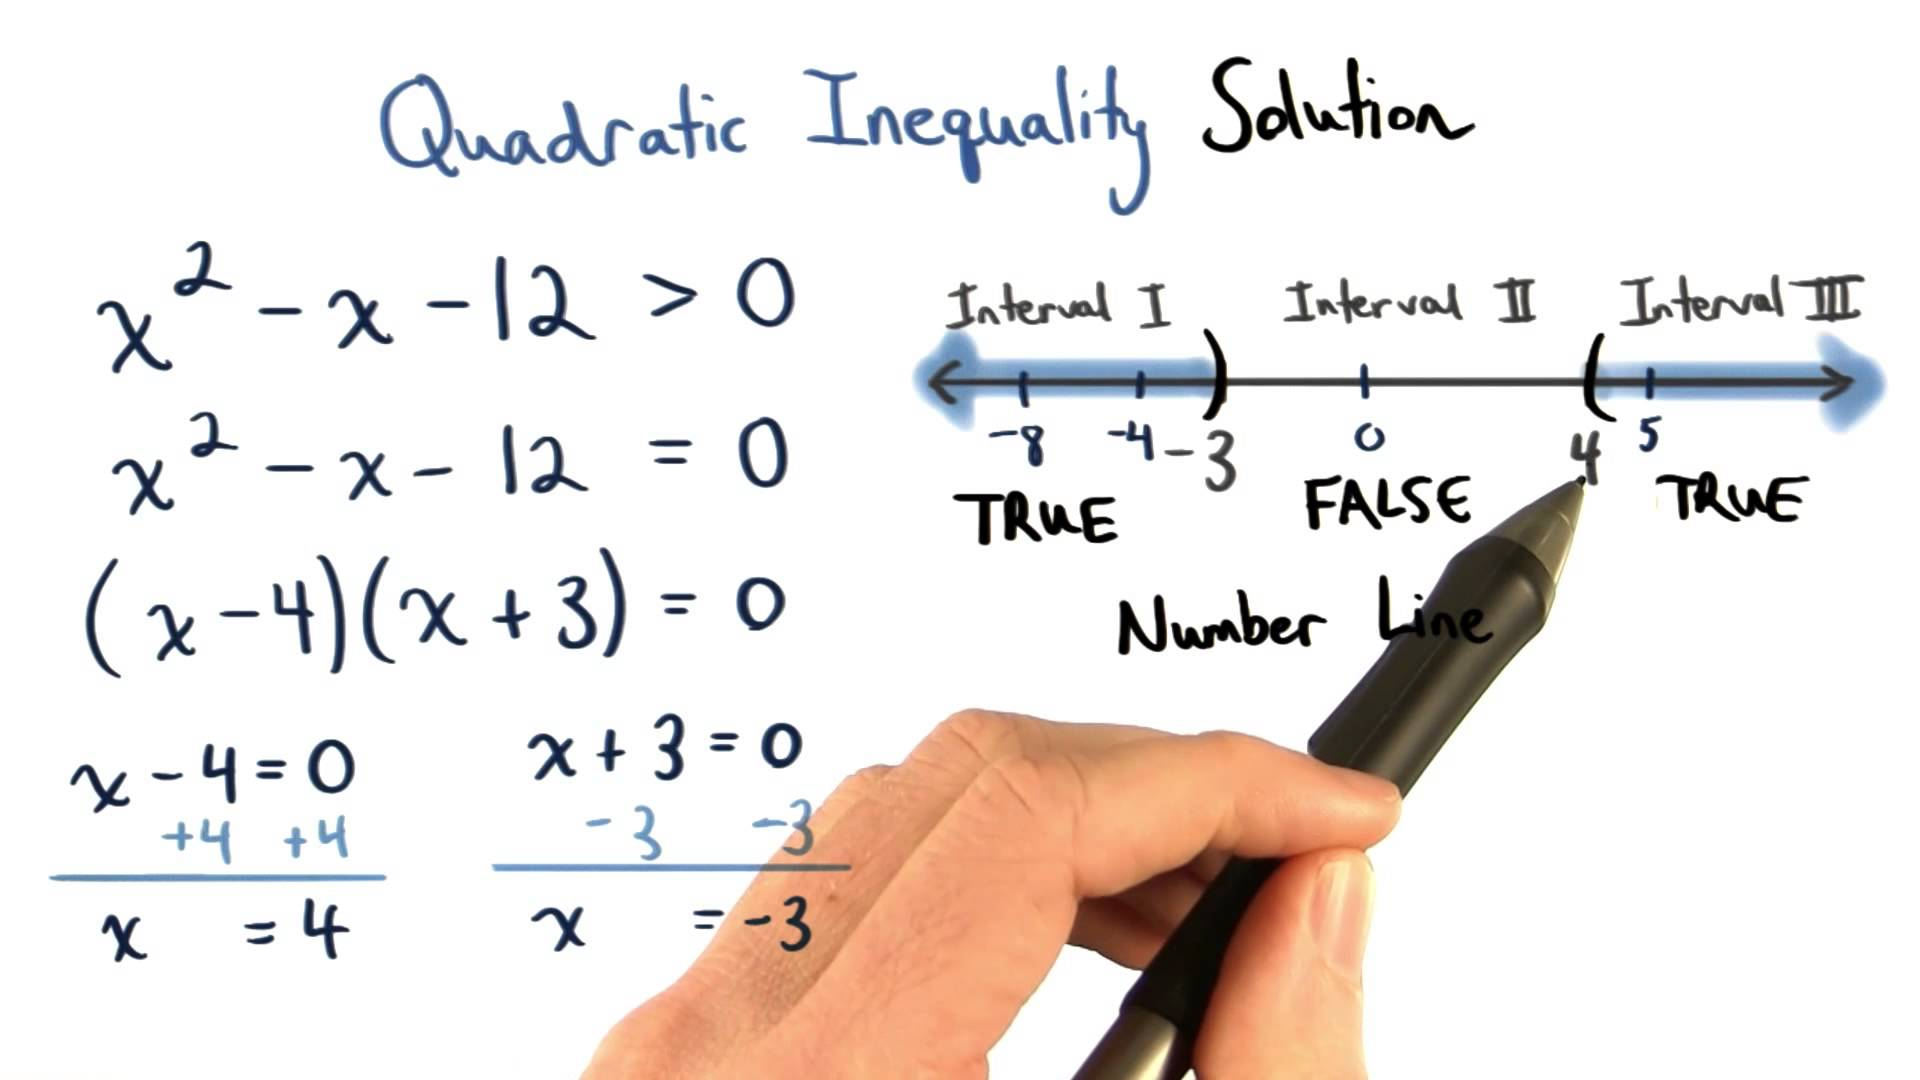 Quadratic Inequality Solution
x² - x - 12 > 0
x² - x - 12 = 0
(x - 4)(x + 3) = 0
x - 4 = 0
+4 +4
x = 4
x + 3 = 0
-3 -3
x = -3
Interval I Interval II Interval III
-8 -4 -3 0 4 5
TRUE FALSE TRUE
Number Line